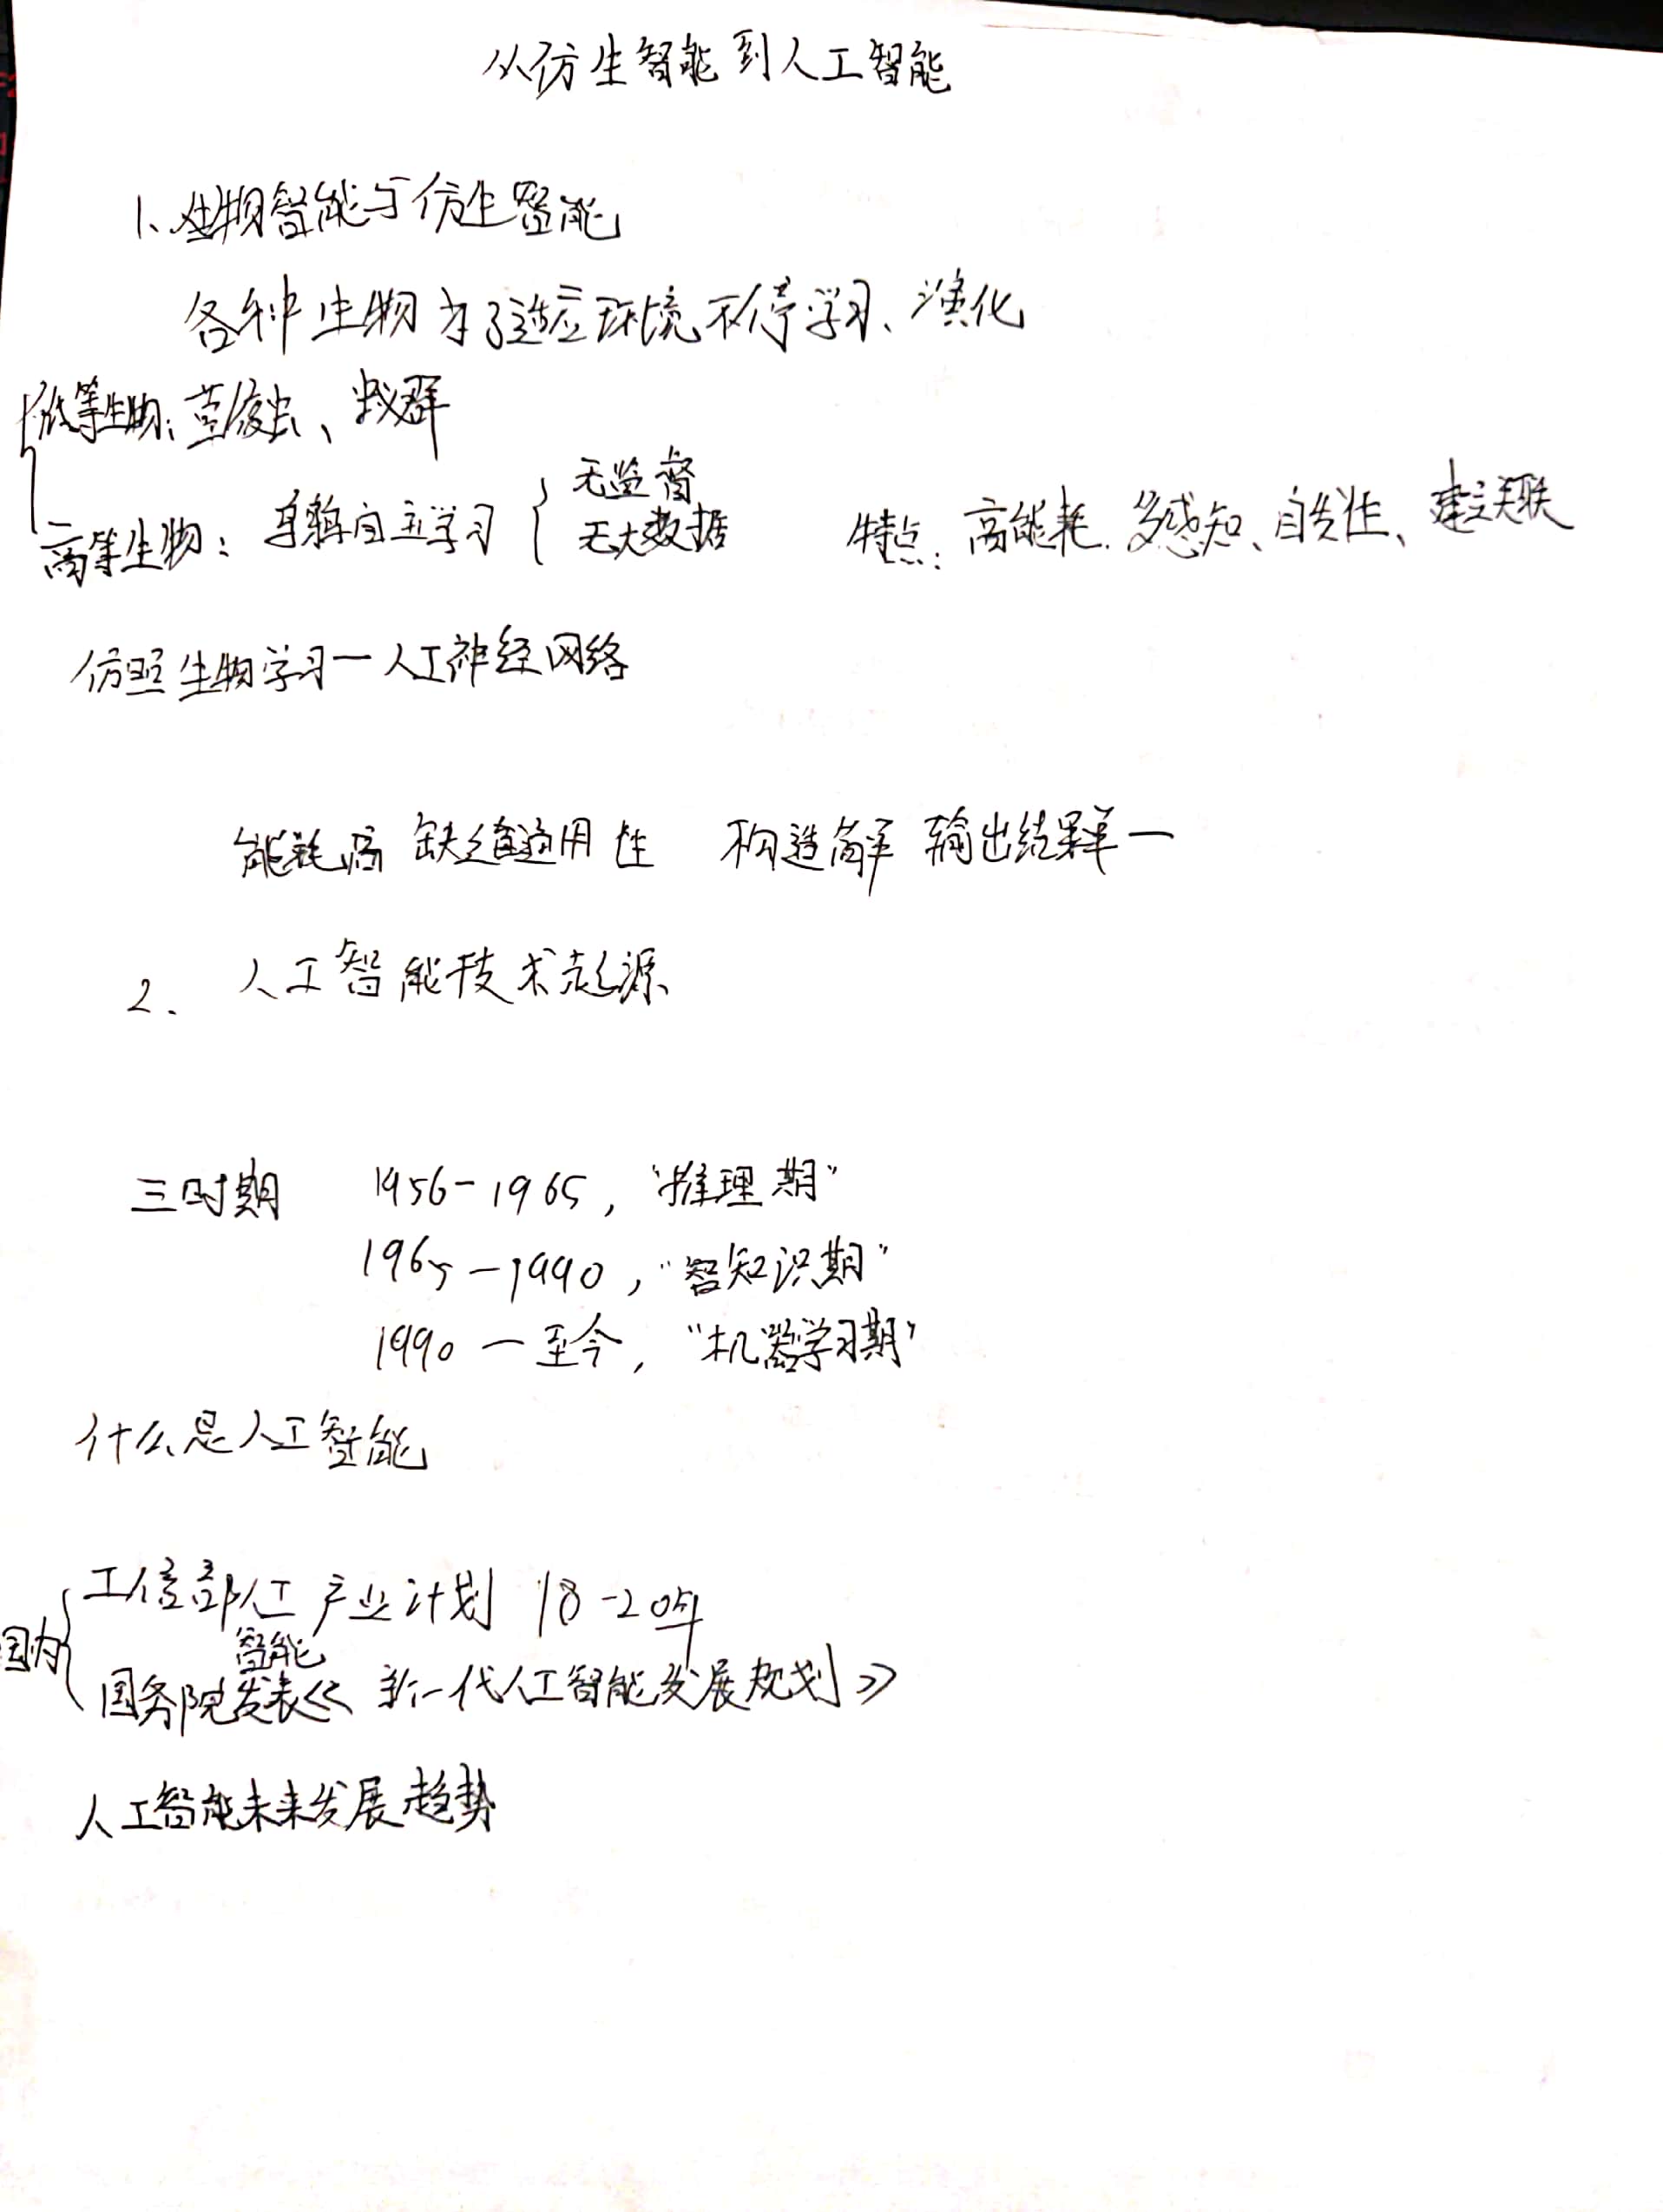 从仿生智能到人工智能
1、生物智能与仿生智能
各种生物为了适应环境不停学习、演化
低等生物：草履虫、蚁群
高等生物：乌鸦自主学习 无监督 无大数据 特点：高能耗、多感知、自发性、建立关联
仿照生物学习一人工神经网络
能耗高 缺乏通用性 构造简单 输出结果单一
2. 人工智能技术起源
三时期 1956-1965，“推理期”
1965-1990，“知识期”
1990一至今，“机器学习期”
什么是人工智能
国内 工信部人工智能产业计划 18-20年
国务院发表《新一代人工智能发展规划》
人工智能未来发展趋势